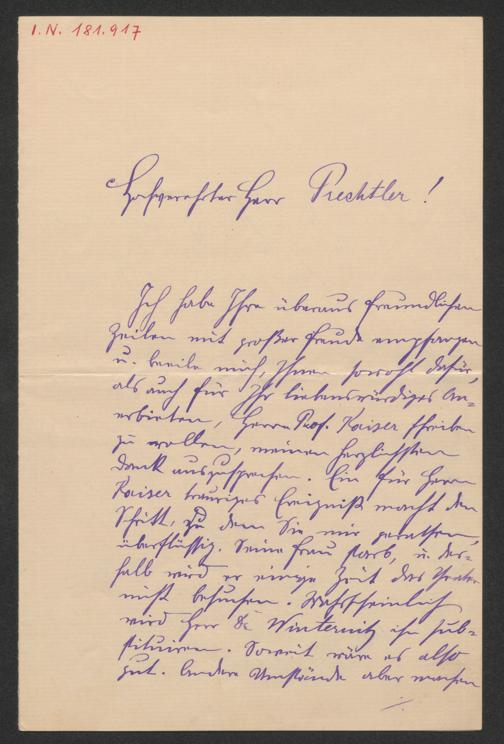 I.N. 181.917
Hochverehrter Herr Prechtler!
Ich habe Ihre überaus freundlichen
Zeilen mit großer Freude empfangen
u. beeile mich, Ihnen sowohl dafür,
als auch für Ihr liebenswürdiges An-
erbieten, Herrn Prof. Kaiser schreiben
zu wollen, meinen herzlichsten
Dank auszusprechen. Ein für Herrn
Kaiser trauriges Ereigniß macht den
Schritt, zu dem Sie mir gerathen,
überflüssig. Seine Frau starb, u. des-
halb wird er einige Zeit das Theater
nicht besuchen. Wahrscheinlich
wird Herr Dr Winternitz ihn sub-
stituiren. Soweit wäre es also
gut. Andere Umstände aber machen